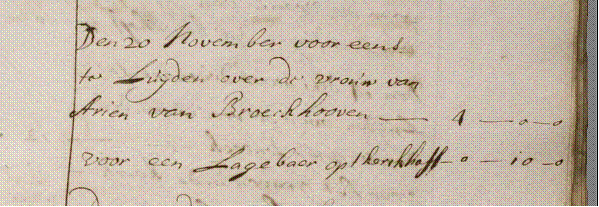 Den 20 November voor eens
te Luijden over de vrouw van
Arien van Broeckhooven —— 4 — o — o
voor een Lagebaer opt kerckhoff — o — 10 — o